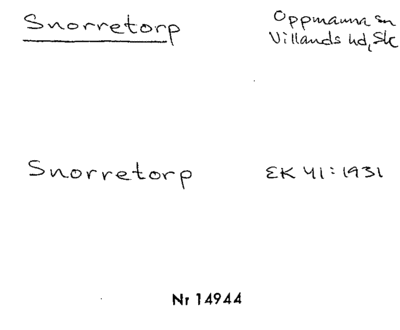 Snorretorp
Oppmanna sn
Villands hd, Sk
Snorretorp
EK 41:1931
Nr 14944